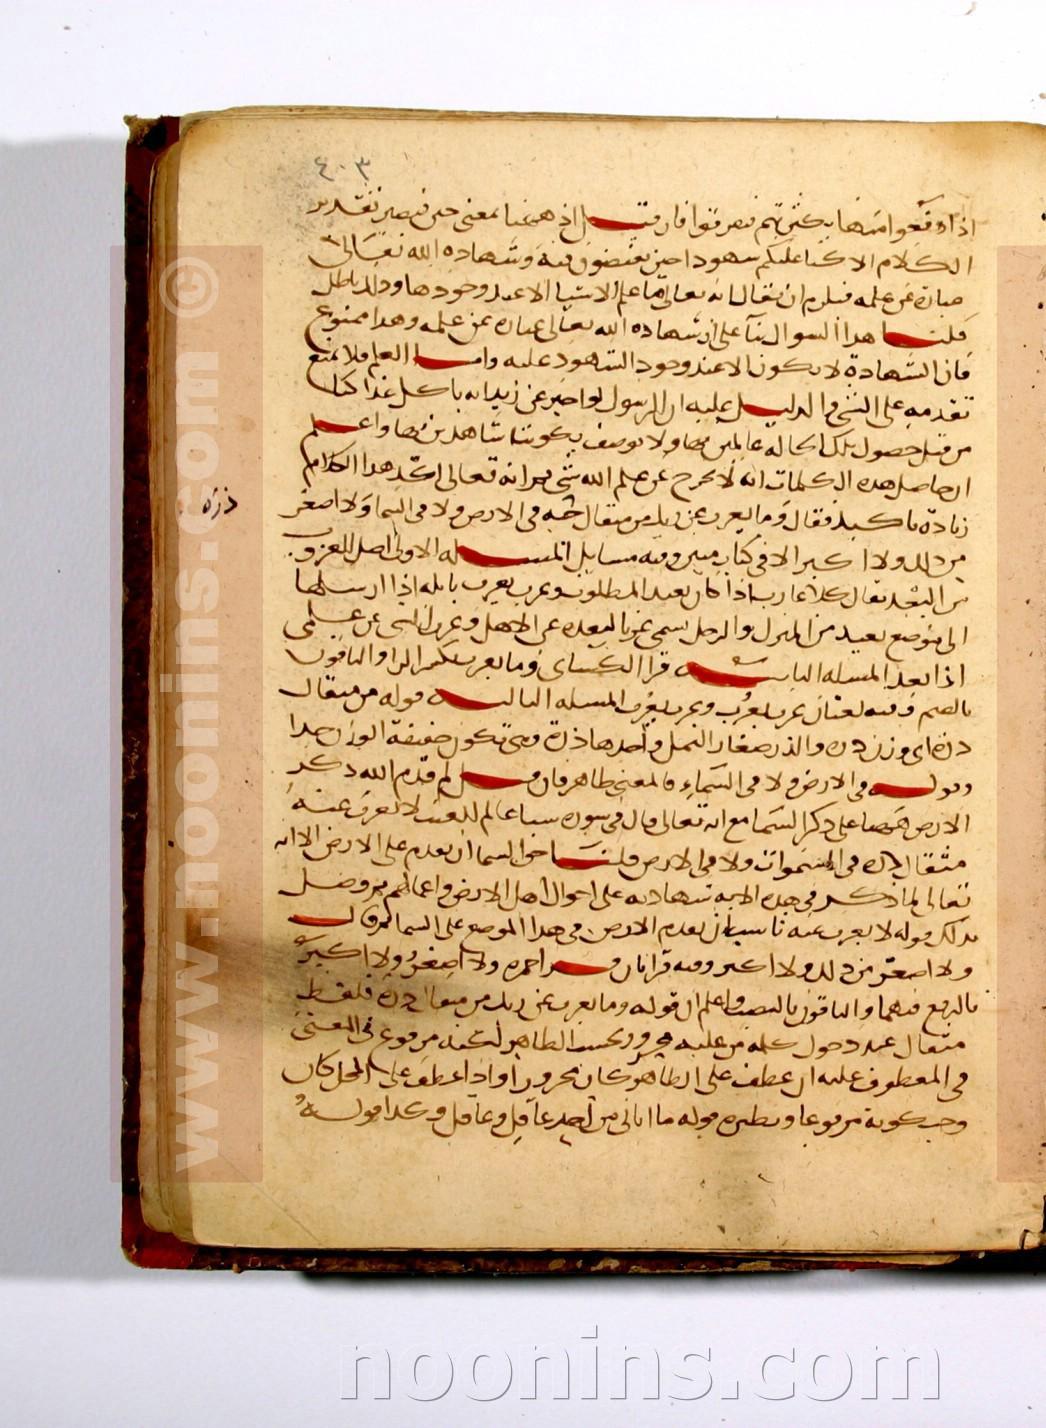 ٤٠٣
اذا دفعوا منها بكثرتهم فتفرقوا فان قيل اذ ههنا بمعنى حين فيصير تقدير
الكلام الا كنا عليكم شهودا حين تفيضون فيه وشهادة الله تعالى
عبارة عن علمه فيلزم ان يقال انه تعالى ما علم الاشيا الا عند وجودها وذلك باطل
قلنا هذا السوال بنآ على ان شهادة الله تعالى عبارة عن علمه وهذا ممنوع
فان الشهادة لا تكون الا عند وجود المشهود عليه واما العلم فلا يمتنع
تقدمه على الشي والدليل عليه ان الرسول لو اخبر عن زيد انه ياكل غدا كنا
من قبل حصول تلك الحالة عالمين بها ولا نوصف بكوننا شاهدين بها واعلم
ان حاصل هذه الكلمات انه لا يخرج عن علم الله شي ثم انه تعالى اكد هذا الكلام
زيادة تاكيد فقال وما يعزب عن ربك من مثقال ذرة في الارض ولا في السما ولا اصغر
ذرة
من ذلك ولا اكبر الا في كتاب مبين وفيه مسايل المسله الاولى اصل العزوب
من البعد يقال كلا عازب اذا كان بعيد المطلوب وعزب يعزب بابله اذا ارسلها
الى موضع بعيد من المنزل والرجل سمي عزبا لبعده عن الاهل وعزب الشي عن علمي
اذا بعد المسله الثانيه قرا الكسائي وما يعزب بكسر الزا والباقون
بالضم وفيه لغتان عزب يعزُب وعزب يعزِب المسله الثالثه قوله من مثقال
ذرة اي وزن ذرة والذر صغار النمل واحدها ذرة وهي تكون خفيفة الوزن جدا
وقوله في الارض ولا في السماء فالمعنى ظاهر فان قيل لم قدم الله ذكر
الارض ههنا على ذكر السما مع انه تعالى قال في سورة سبا عالم الغيب لا يعزب عنه
مثقال ذرة في السموات ولا في الارض قلنا حق السما ان تقدم على الارض الا انه
تعالى لما ذكر في هذه الاية شهادته على احوال اهل الارض واعمالهم ثم وصل
بذلك قوله لا يعزب عنه ناسب ان تقدم الارض في هذا الموضع على السما ثم قال
ولا اصغر من ذلك ولا اكبر وفيه قراتان قرا حمزة ولا اصغرُ ولا اكبرُ
بالرفع فيهما والباقون بالنصب واعلم ان قوله وما يعزب عن ربك من مثقال ذرة فلفظ
مثقال عند دخول كلمه من عليه مجرور بحسب الظاهر لكنه مرفوع في المعنى
في المعطوف عليه ان عطف على الظاهر كان مجرورا واذا عطف على المحل كان
وجب كونه مرفوعا ونظيره قوله ما اتاني من احد عاقلٍ وعاقلٌ وكذا قوله
www.noonins.com ©
noonins.com